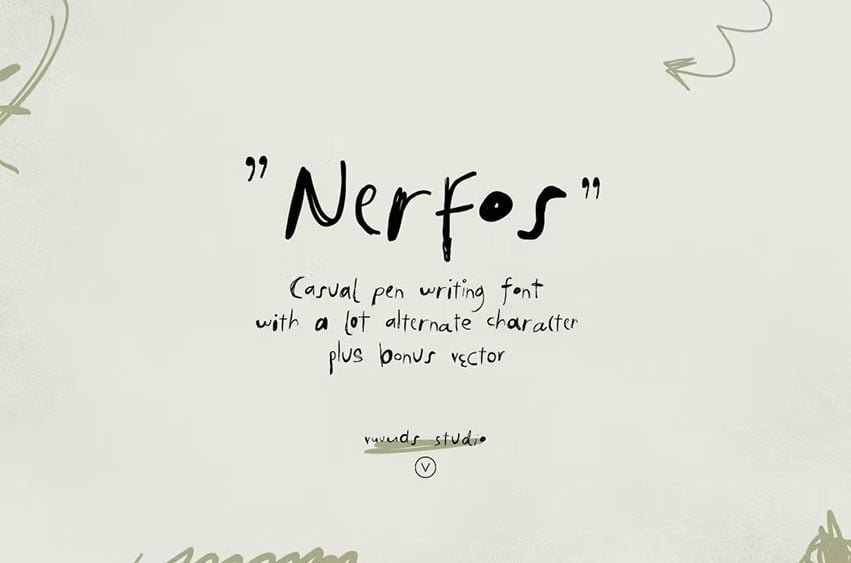 ”Nerfos”
Casual pen writing font
with a lot alternate character
plus bonus vector
studio
V